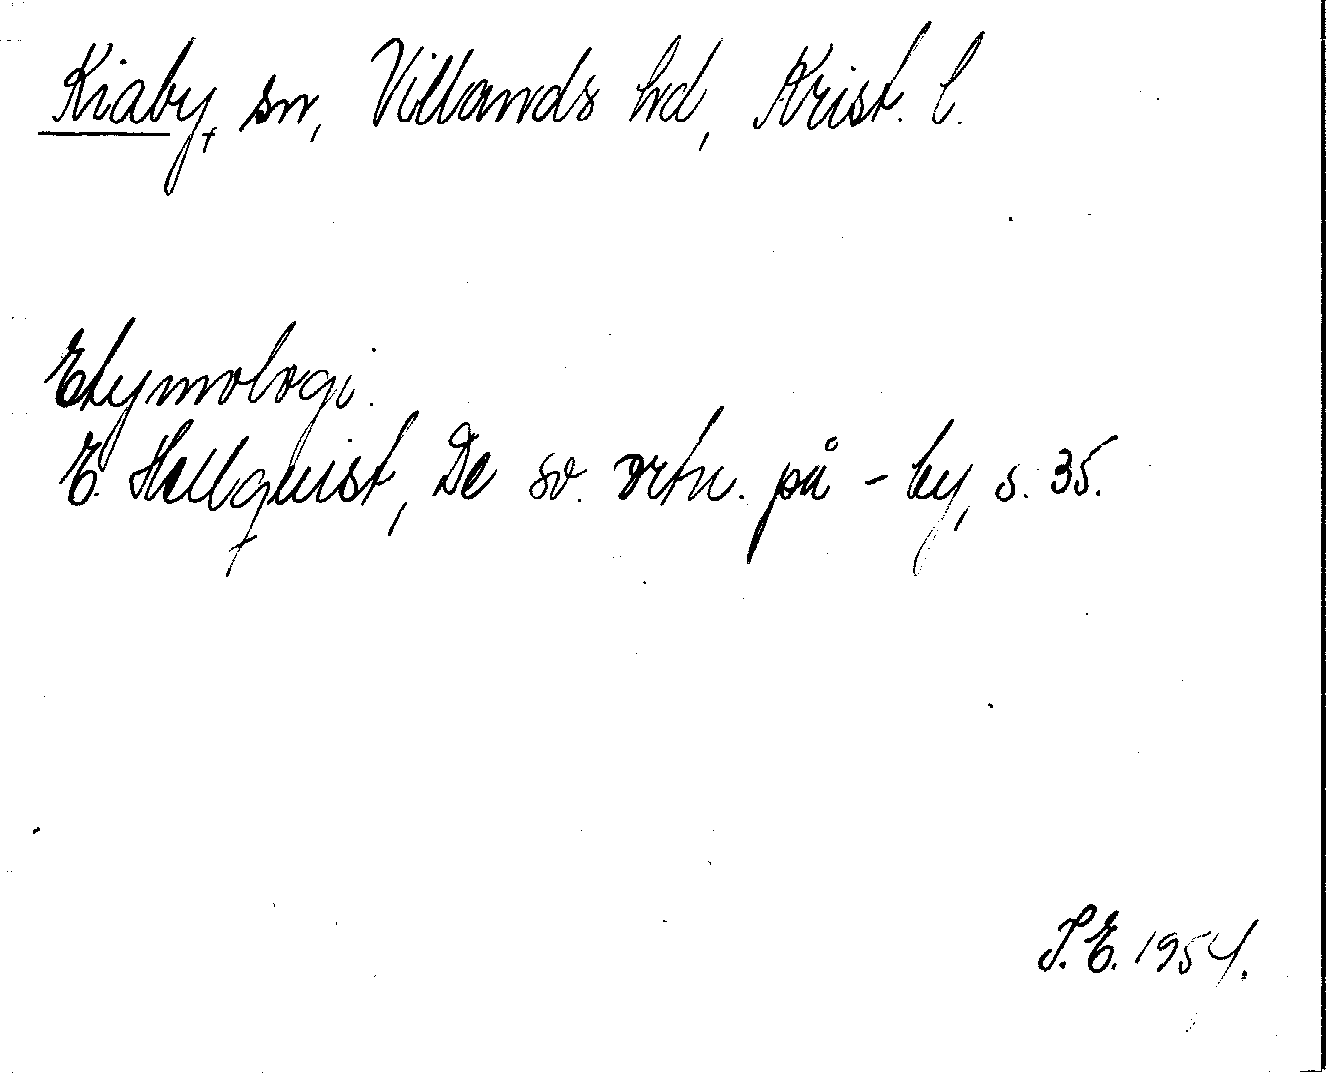 Kiaby, sn, Villands hd, Krist. l.
Etymologi.
E. Hellquist, De sv. ortn. på -by, s. 35.
S.E. 1954.